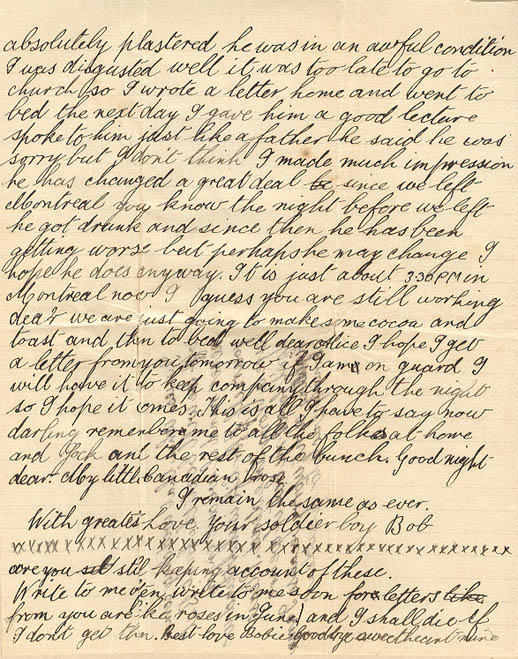 absolutely plastered he was in an awful condition
I was disgusted well it was too late to go to
church so I wrote a letter home and went to
bed the next day I gave him a good lecture
spoke to him just like a father he said he was
sorry but I don't think I made much impression
he has changed a great deal since we left
Montreal you know the night before we left
he got drunk and since then he has been
getting worse but perhaps he may change I
hope he does anyway. It is just about 3:30 PM in
Montreal now I guess you are still working
dear we are just going to make some cocoa and
toast and then to bed well dear Alice I hope I get
a letter from you tomorrow if I am on guard I
will have it to keep company through the night
so I hope it comes. This is all I have to say now
darling remember me to all the folks at home
and Jack and the rest of the bunch. Good night
dear. My little Canadian rose
I remain the same as ever.
With greatest Love. Your soldier boy Bob
xxxxxxxxxxxxxxxxxxxxxxxxxxxxxxxxxxxx
are you still keeping account of these.
Write to me write to me soon for letters
from you are like roses in June and I shall die if
I dont get thn. Best love Bobie Goodbye sweetheart mine